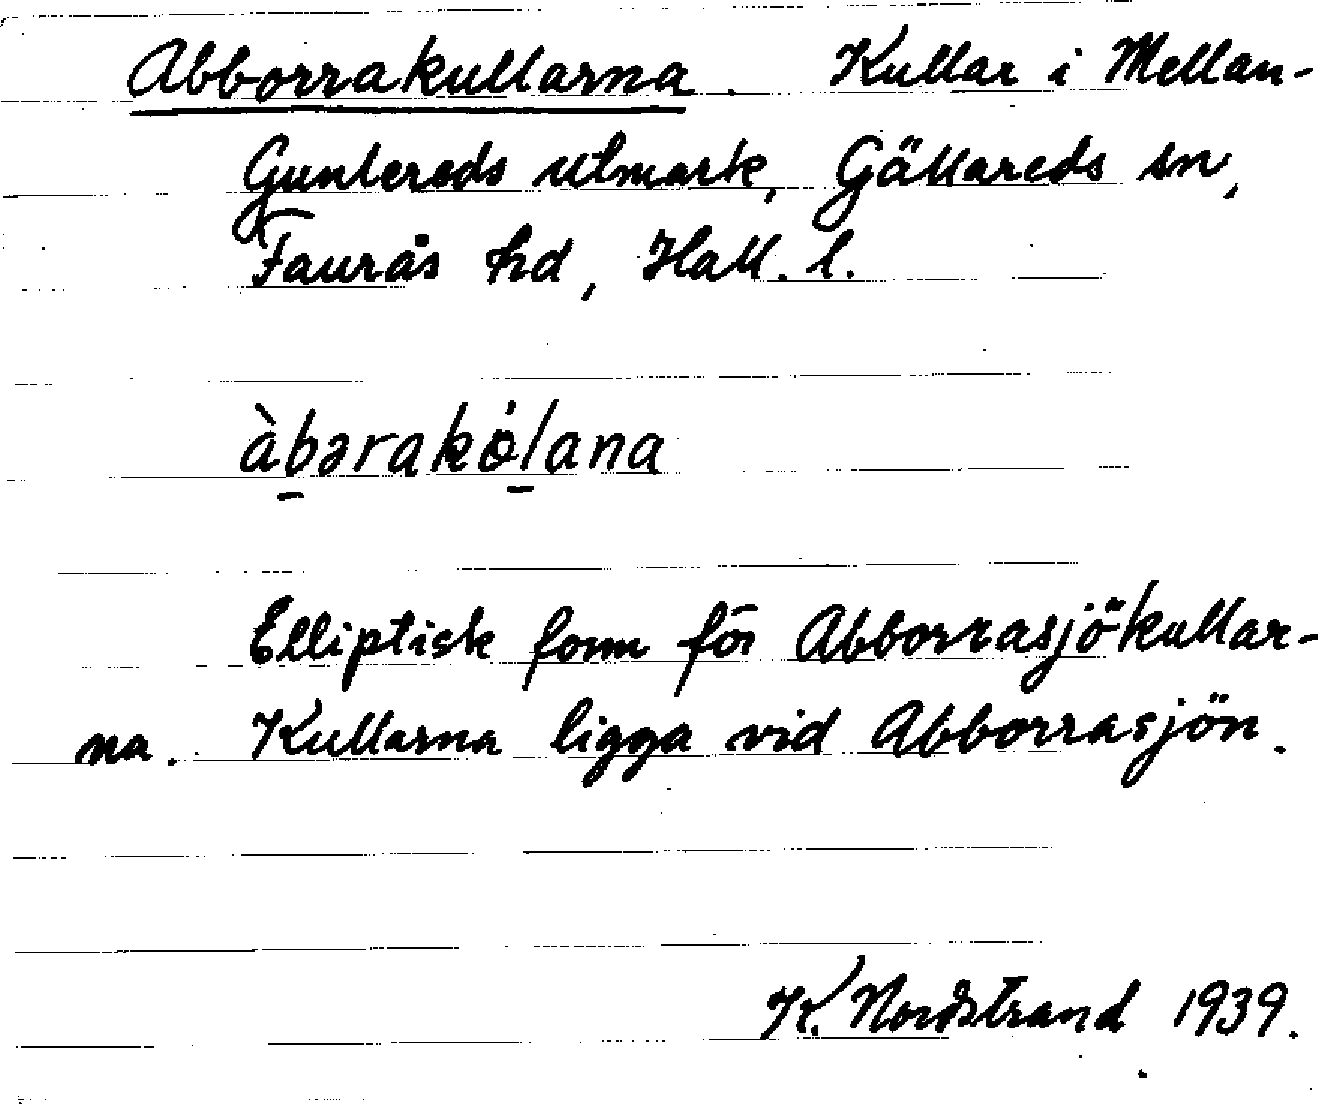 Abborrakullarna. Kullar i Mellan-
Guntereds utmark, Gällareds sn,
Faurås hd, Hall. l.
àb̠ərakö̀l̠ana
Elliptisk form för Abborrasjökullar-
na. Kullarna ligga vid Abborrasjön.
K. Nordstrand 1939.